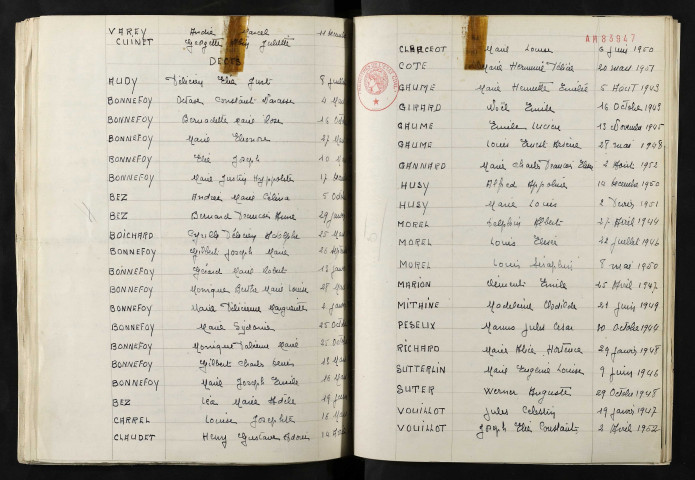 VAREY André Marcel
CUINET Georgette Juliette
DECES
AUDY Félicien Elie Just 8
BONNEFOY Octave Constant
BONNEFOY Bernadette Marie Rose 16
BONNEFOY Marie Eléonore 27
BONNEFOY Elie Joseph 10
BONNEFOY Marie Justin Hyppolite 17
BEZ Andréa Marie Célina 5 Octo
BEZ Bernard Francois 29 janv
BOICHARD Cyrille Félicien Adolphe 25 Mar
BONNEFOY Gilbert Joseph Marie 26
BONNEFOY Gérard Marie Robert 12 janv
BONNEFOY Monique Berthe Marie Louise 28
BONNEFOY Marie Félicienne Marguerite 2 janv
BONNEFOY Marie Sydonie 25 Octo
BONNEFOY Monique Marie 25 Octo
BONNEFOY Gilbert Charles 18 Mar
BONNEFOY Marie Joseph Emile 16 Mar
BEZ Léa Marie Adèle 19
CARREL Louise Josephte 16 Mar
CLAUDET Henry Gustave
AH83947
CLERCEOT Marie Louise 6 juin 1950
COTE Marie Herminie 20 mars 1951
GHUME Marie Henriette Emilie 5 Aout 1943
GIRARD Noël Emile 16 Octobre 1943
GAUME Emile Lucien 13 Novembre 1945
GAUME Louis Ernest 28 mai 1948
GANNARD Marie Charles Francois 2 Aout 1952
HUSY Alfred Appoline 14 Decembre 1950
HUSY Marie Louis 2 1951
MOREL Delphin Albert 27 Avril 1944
MOREL Louis 22 juillet 1946
MOREL Louis Séraphin 8 mai 1950
MARION Clément Emile 25 Avril 1947
MITHINE Madeleine Clodilde 21 juin 1949
PESEUX Jules Cesar 30 Octobre 1944
RICHARD Marie Alice Hortence 29 janvier 1948
SUTTERLIN Marie Eugénie Louise 9 juin 1946
SUTER Werner Auguste 29 Octobre 1948
VOUILLOT Jules Celestin 19 janvier 1947
VOUILLOT Joseph Elie Constant 2 Avril 1952